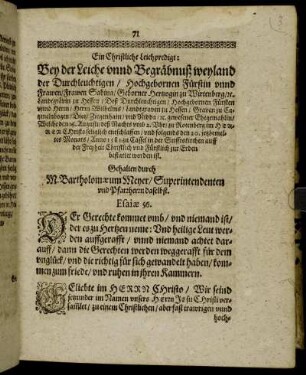 71
Ein Christliche Leichpredigt:
Bey der Leiche vnnd Begräbnuß weyland
der Durchleuchtigen / Hochgebornen Fürstin vnnd
Frawen / Frawen Sabina / Geborner Hertzogin zu Würtenberg / ꝛc.
Landgräuin zu Hessen / Deß Durchleuchtigen / Hochgebornen Fürsten
vnnd Herrn / Herrn Wilhelms / Landgrauen zu Hessen / Grauen zu
bogen / Dietz / Ziegenhain / vnd Nidda / ꝛc. gewesener Ehegemahlin /
Welche den 16. Augusti / deß Nachts vmb 2. Vhr / zu Rotenberg im
Christo seliglich entschlaffen / vnd folgends den 20.
Monats / Anno 1581. zu Cassel in der Stifftskirchen auff
der Freyheit Christlich vnd Fürstlich zur Erden
bestattet worden ist.
Gehalten durch
M. Bartholomæum Meyer / Superintendenten
vnd Pfarrherrn daselbst.
Esaiæ 56.
DEr Gerechte kommet vmb / vnd niemand ist /
der es zu Hertzen neme: Vnd heilige Leut wer-
den auffgerafft / vnnd niemand achtet dar-
auff / dann die Gerechten werden weggerafft für dem
vnglück / vnd die richtig für sich gewandelt haben / kom-
men zum friede / vnd ruhen in jhren Kammern.
GEliebte im HERRN CHristo / Wir seind
jetzunder im Namen vnsers Herrn Jesu Christi ver-
samlet / zu einem Christlichen / aber fast trawrigen vnnd
hoch-